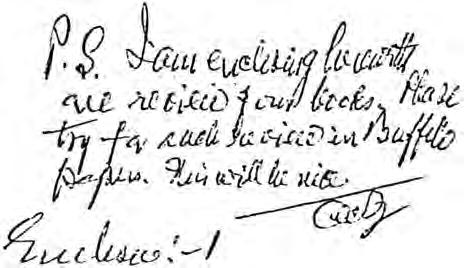 P.S. I am enclosing herewith
one review of our books. Please
try for such review in Buffalo
papers. This will be nice.
Enclosure:-1